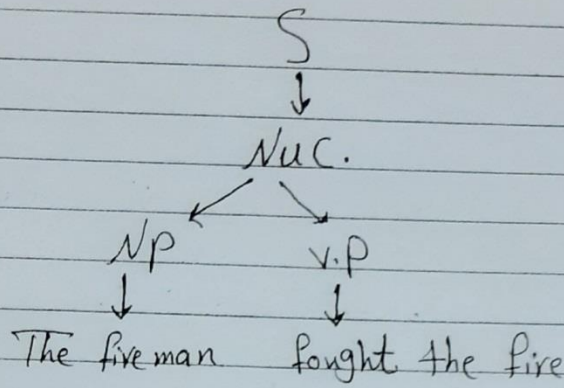 S
Nuc.
Np v.p
The fireman fought the fire